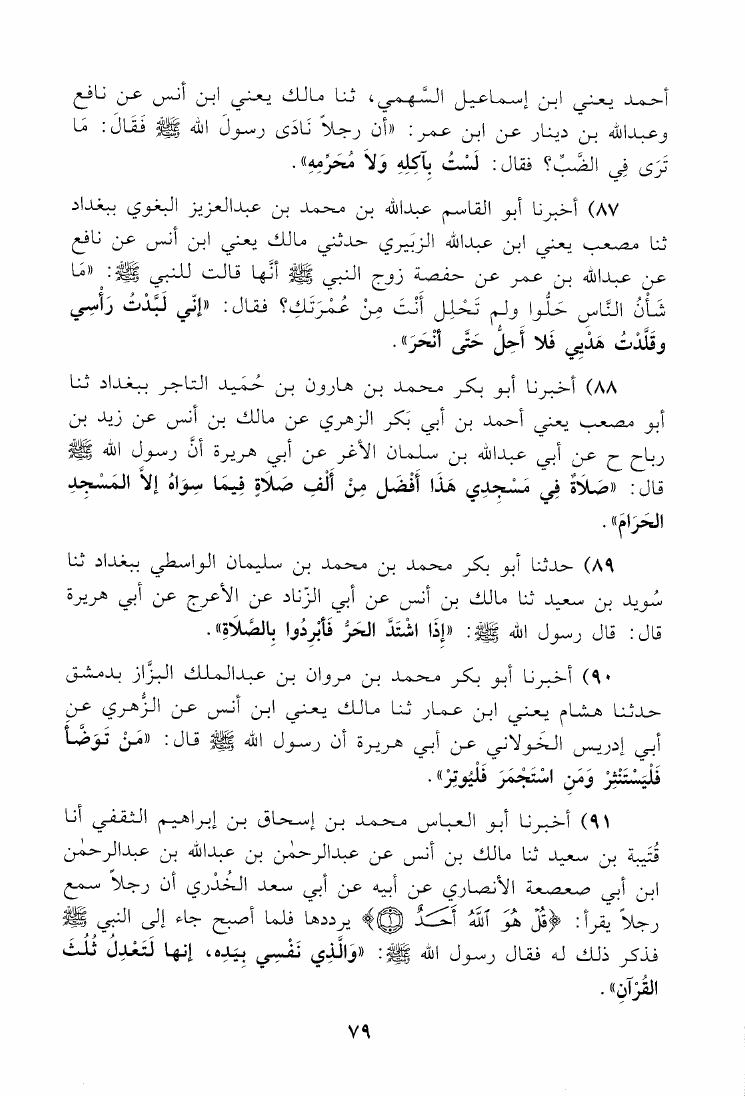 أحمد يعني ابن إسماعيل السَّهمي، ثنا مالك يعني ابن أنس عن نافع
وعبدالله بن دينار عن ابن عمر: «أن رجلاً نَادَى رسولَ الله ﷺ فَقَالَ: مَا
تَرَى فِي الضَّبِّ؟ فقال: لَسْتُ بِآكِلِهِ وَلاَ مُحَرِّمِهِ».
٨٧) أخبرنا أبو القاسم عبدالله بن محمد بن عبدالعزيز البغوي ببغداد
ثنا مصعب يعني ابن عبدالله الزبَيري حدثني مالك يعني ابن أنس عن نافع
عن عبدالله بن عمر عن حفصة زوج النبي ﷺ أنَّها قالت للنبي ﷺ: «مَا
شَأْنُ النَّاس حَلُّوا ولم تَحْلِل أَنْتَ مِنْ عُمْرَتَكِ؟ فقال: «إنّي لَبَّدْتُ رَأْسِي
وقَلَّدْتُ هَدْيِي فَلا أَحِلُّ حَتَّى أَنْحَرَ».
٨٨) أخبرنا أبو بكر محمد بن هارون بن حُمَيد التاجر ببغداد ثنا
أبو مصعب يعني أحمد بن أبي بَكر الزهري عن مالك بن أنس عن زيد بن
رباح ح عن أبي عبدالله بن سلمان الأغر عن أبي هريرة أنَّ رسول الله ﷺ
قال: «صَلاَةٌ فِي مَسْجِدِي هَذَا أَفْضَل مِنْ أَلْفِ صَلاَةٍ فِيمَا سِوَاهُ إلاَّ المَسْجِدِ
الحَرَامَ».
٨٩) حدثنا أبو بكر محمد بن محمد بن سليمان الواسطي ببغداد ثنا
سُويد بن سعيد ثنا مالك بن أنس عن أبي الزّناد عن الأعرج عن أبي هريرة
قال: قال رسول الله ﷺ: «إِذَا اشْتَدَّ الحَرُّ فَأَبْرِدُوا بِالصَّلاَةِ».
٩٠) أخبرنا أبو بكر محمد بن مروان بن عبدالملك البزَّاز بدمشق
حدثنا هشام يعني ابن عمار ثنا مالك يعني ابن أنس عن الزُّهري عن
أبي إدريس الخَولاني عن أبي هريرة أن رسول الله ﷺ قال: «مَنْ تَوَضَّأَ
فَلْيَسْتَنْثِرْ وَمَنِ اسْتَجْمَرَ فَلْيُوتِرْ».
٩١) أخبرنا أبو العباس محمد بن إسحاق بن إبراهيم الثقفي أنا
قُتَيبة بن سعيد ثنا مالك بن أنس عن عبدالرحمٰن بن عبدالله بن عبدالرحمٰن
ابن أبي صعصعة الأنصاري عن أبيه عن أبي سعد الخُدْري أن رجلاً سمع
رجلاً يقرأ: ﴿قُلْ هُوَ ٱللَّهُ أَحَـدٌ ۝١﴾ يرددها فلما أصبح جاء إلى النبي ﷺ
فذكر ذلك له فقال رسول الله ﷺ: «وَالَّذِي نَفْسِي بِيَدِه، إنها لَتَعْدِلُ ثُلُثَ
القُرْآنِ».
٧٩